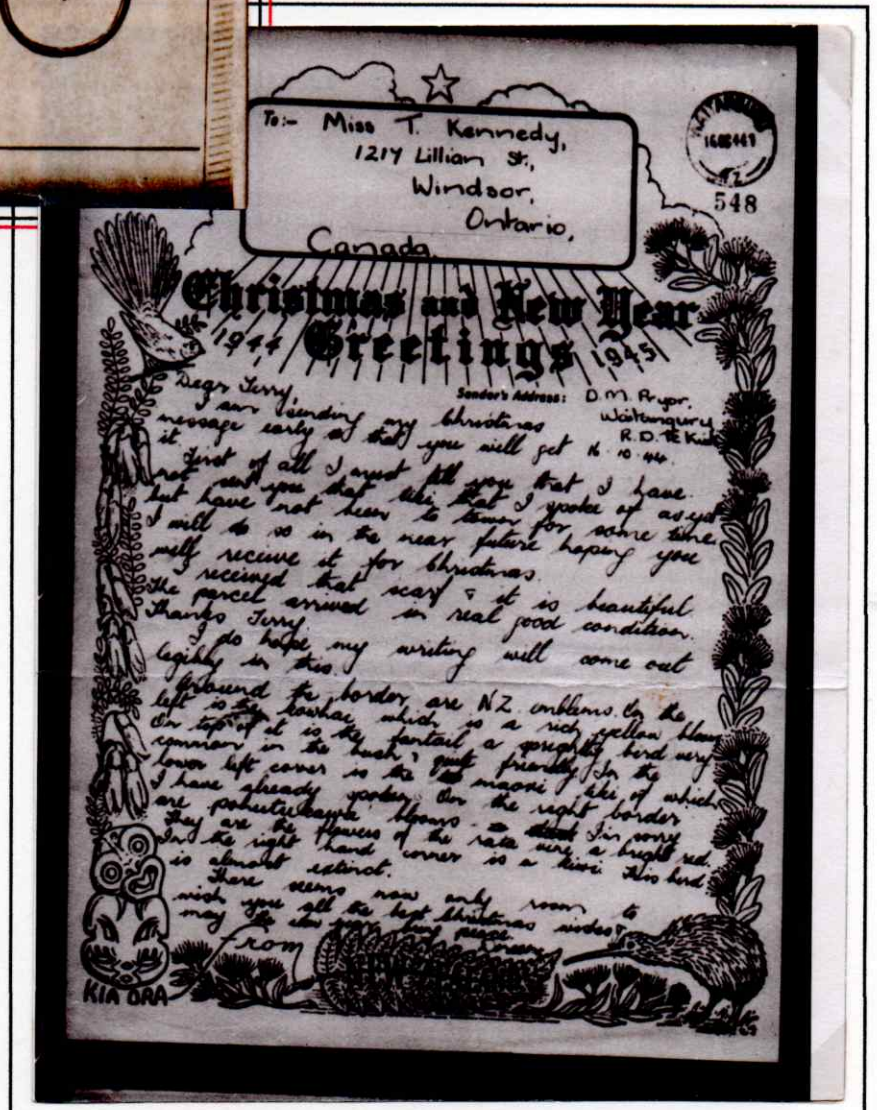 To:- Miss T. Kennedy,
1217 Lillian St.,
Windsor,
Ontario,
Canada.
16 OC 44
N.Z.
548
Christmas and New Year
1944 Greetings 1945
Sender's Address: D.M. Pryor,
R.D. Te Kuiti
16.10.44.
Dear Terry,
I am sending my Christmas
message early so that you will get
it.
First of all I must tell you that I have
not sent you that tiki that I spoke of as yet
but have not been to town for some time
I will do so in the near future hoping you
will receive it for Christmas.
I received that scarf & it is beautiful
The parcel arrived in real good condition.
Thanks Terry.
I do hope my writing will come out
legibly in this.
Around the border are NZ. emblems. On the
left is the kowhai which is a rich yellow bloom
On top of it is the fantail a sprightly bird very
common in the bush & quite friendly In the
lower left corner is the maori tiki of which
I have already spoken On the right border
are pohutukawa blooms I'm sorry
They are the flowers of the rata vine a bright red.
In the right hand corner is a kiwi This bird
is almost extinct.
There seems now only room to
wish you all the best Christmas wishes &
may the new year bring peace
From
KIA ORA